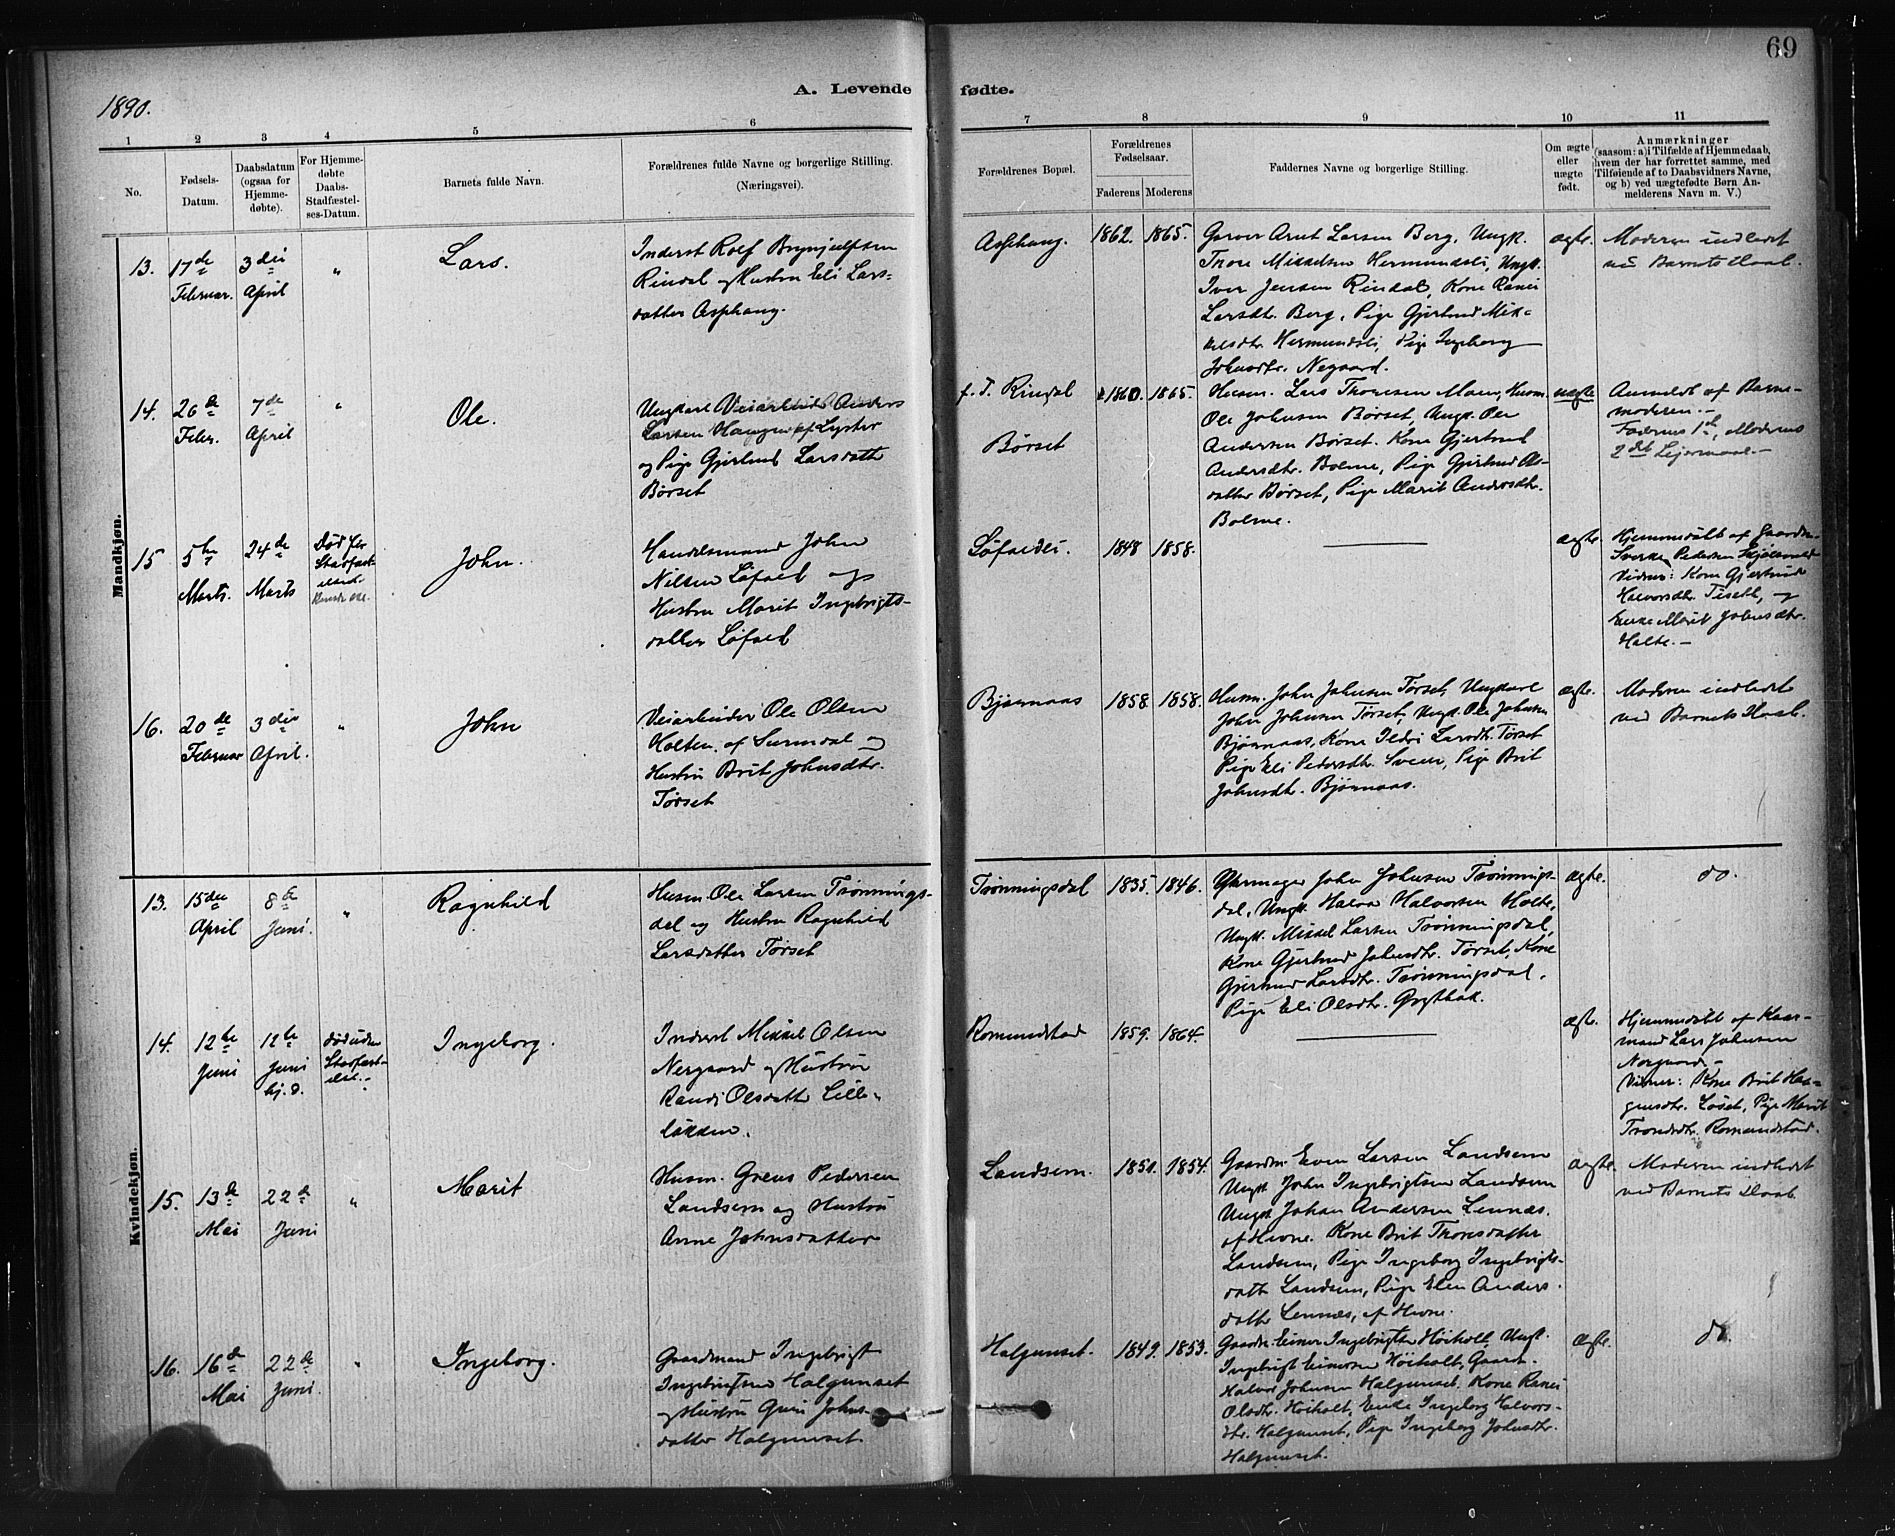 69
1890.
A. Levende fødte.
1 2 3 4 5 6 7 8 9 10 11
No.
Fødsels-
Datum.
Daabsdatum
(ogsaa for
Hjemme-
døbte).
For Hjemme-
døbte
Daabs-
Stadfæstel-
ses-Datum.
Barnets fulde Navn.
Forældrenes fulde Navne og borgerlige Stilling.
(Næringsvei).
Forældrenes Bopæl.
Forældrenes
Fødselsaar.
Faderens Moderens
Faddernes Navne og borgerlige Stilling.
Om ægte
eller
uægte
født.
Anmærkninger
(saasom: a) i Tilfælde af Hjemmedaab,
hvem der har forrettet samme, med
Tilføiende af to Daabsvidners Navne,
og b) ved uægtefødte Børn An-
melderens Navn m. V.)
Mandkjøn.
13.
17de
Februar.
3die
April
"
Lars.
Inderst Rolf Brynjulfsen
Rindal og Hustru Eli Lars-
datter Asphaug.
Asphaug.
1862. 1865.
Garver Arnt Larsen Berg, Ungk.
Thore Mikkelsen Hermundsli, Ungk.
Iver Jensen Rindal, Kone Ranei
Larsdtr. Berg, Pige Gjertrud Mik-
kelsdtr. Hermundsli, Pige Ingeborg
Johnsdtr. Negaard.
ægte.
Moderen indledet
ved Barnets Daab.
14.
26de
Febr.
7de
April
"
Ole.
Ungkarl Veiarbeider Anders
Larsen Haugen af Lyster
og Pige Gjertrud Larsdatter
Børset
f. T. Rindal
Børset
1860. 1865.
Husm. Lars Thoresen Moen, Husm.
Ole Johnsen Børset, Ungk. Ole
Andersen Børset. Kone Gjertrud
Andersdtr. Bolme, Pige Gjertrud
datter Børset, Pige Marit Andersdtr.
Bolme.
uægte
Anmeldt af Barne-
moderen.-
Faderens 1ste, Moderens
2det Leiermaal.-
15
5te
Marts.
24de
Marts
Død før
Stadfæst-
else
John.
Handelsmand John
Nilsen Løfald og
Hustru Marit Ingebrigts-
datter Løfald
Løfaldli.
1848 1858.
ægte.
Hjemmedøbt af Gaardm.
Sverke Pedersen
Vidner: Kone Gjertrud
Halvorsdtr. Tiset, og
Enke Marit Johnsdtr.
Holte.-
16.
20de
Februar
3die
April.
"
John
Veiarbeider Ole Olsen
Holten af Surendal og
Hustru Brit Johnsdtr.
Tørset
Bjørnaas
1858. 1858.
Husm. John Johnsen Tørset, Ungkarl
John Johnsen Tørset, Ungk. Ole Johnsen
Bjørnaas, Kone Ildri Larsdtr. Tørset
Pige Eli Pedersdtr. Sveen, Pige Brit
Johnsdtr. Bjørnaas.
ægte.
Moderen indledet
ved Barnets Daab.
Kvindekjøn.
13.
15de
April
8de
Juni.
"
Ragnhild
Husm. Ole Larsen Trønnings-
dal og Hustru Ragnhild
Larsdatter Tørset
Trønningsdal
1835. 1846.
John Johnsen Trønnings-
dal, Ungk. Halvor Halvorsen Holte,
Ungk. Mikkel Larsen Trønningsdal,
Kone Gjertrud Johnsdtr. Tørset, Kone
Gjertrud Larsdtr. Trønningsdal,
Pige Eli Olsdtr. Grytbak.
ægte.
do.
14.
12te
Juni
12te
Juni
hj. d.
død uden
Stadfæst-
else.-
Ingeborg.
Inderst Mikkel Olsen
Nergaard og Hustru
Randi Olsdatter Lille-
løkken.
Romundstad
1859. 1864.
ægte.
Hjemmedøbt af Kaar-
mand Lars Johnsen
Nergaard.-
Vidner: Kone Brit Haa-
gensdtr. Løset, Pige Marit
Trondsdtr. Romundstad.
15.
13de
Mai
22de
Juni
"
Marit
Husm. Greus Pedersen
Landsem og Hustru
Anne Johnsdatter
Landsem.
1850. 1854.
Gaardm. Even Larsen Landsem
Ungk. John Ingebrigtsen Landsem
Ungk. Johan Andersen Lennæs,
af Hevne. Kone Brit Thoresdatter
Landsem, Pige Ingeborg Ingebrigts-
datter Landsem, Pige Elen Anders-
datter Lennæs, af Hevne.
ægte.
Moderen indledet
ved Barnets Daab.
16.
16de
Mai
22de
Juni.
"
Ingeborg.
Gaardmand Ingebrigt
Ingebrigtsen Halgunset
og Hustru Guri Johns-
datter Halgunset.
Halgunset.
1849. 1853.
Gaardm. Einar Ingebrigtsen Høiholt, Ungk.
Ingebrigt Einarsen Høiholt, Gaardm.
Halvor Johnsen Halgunset. Kone Ranei
Olsdtr. Høiholt, Enke Ingeborg Halvors-
dtr. Halgunset, Pige Ingeborg Johnsdtr.
Halgunset.
ægte.
do.